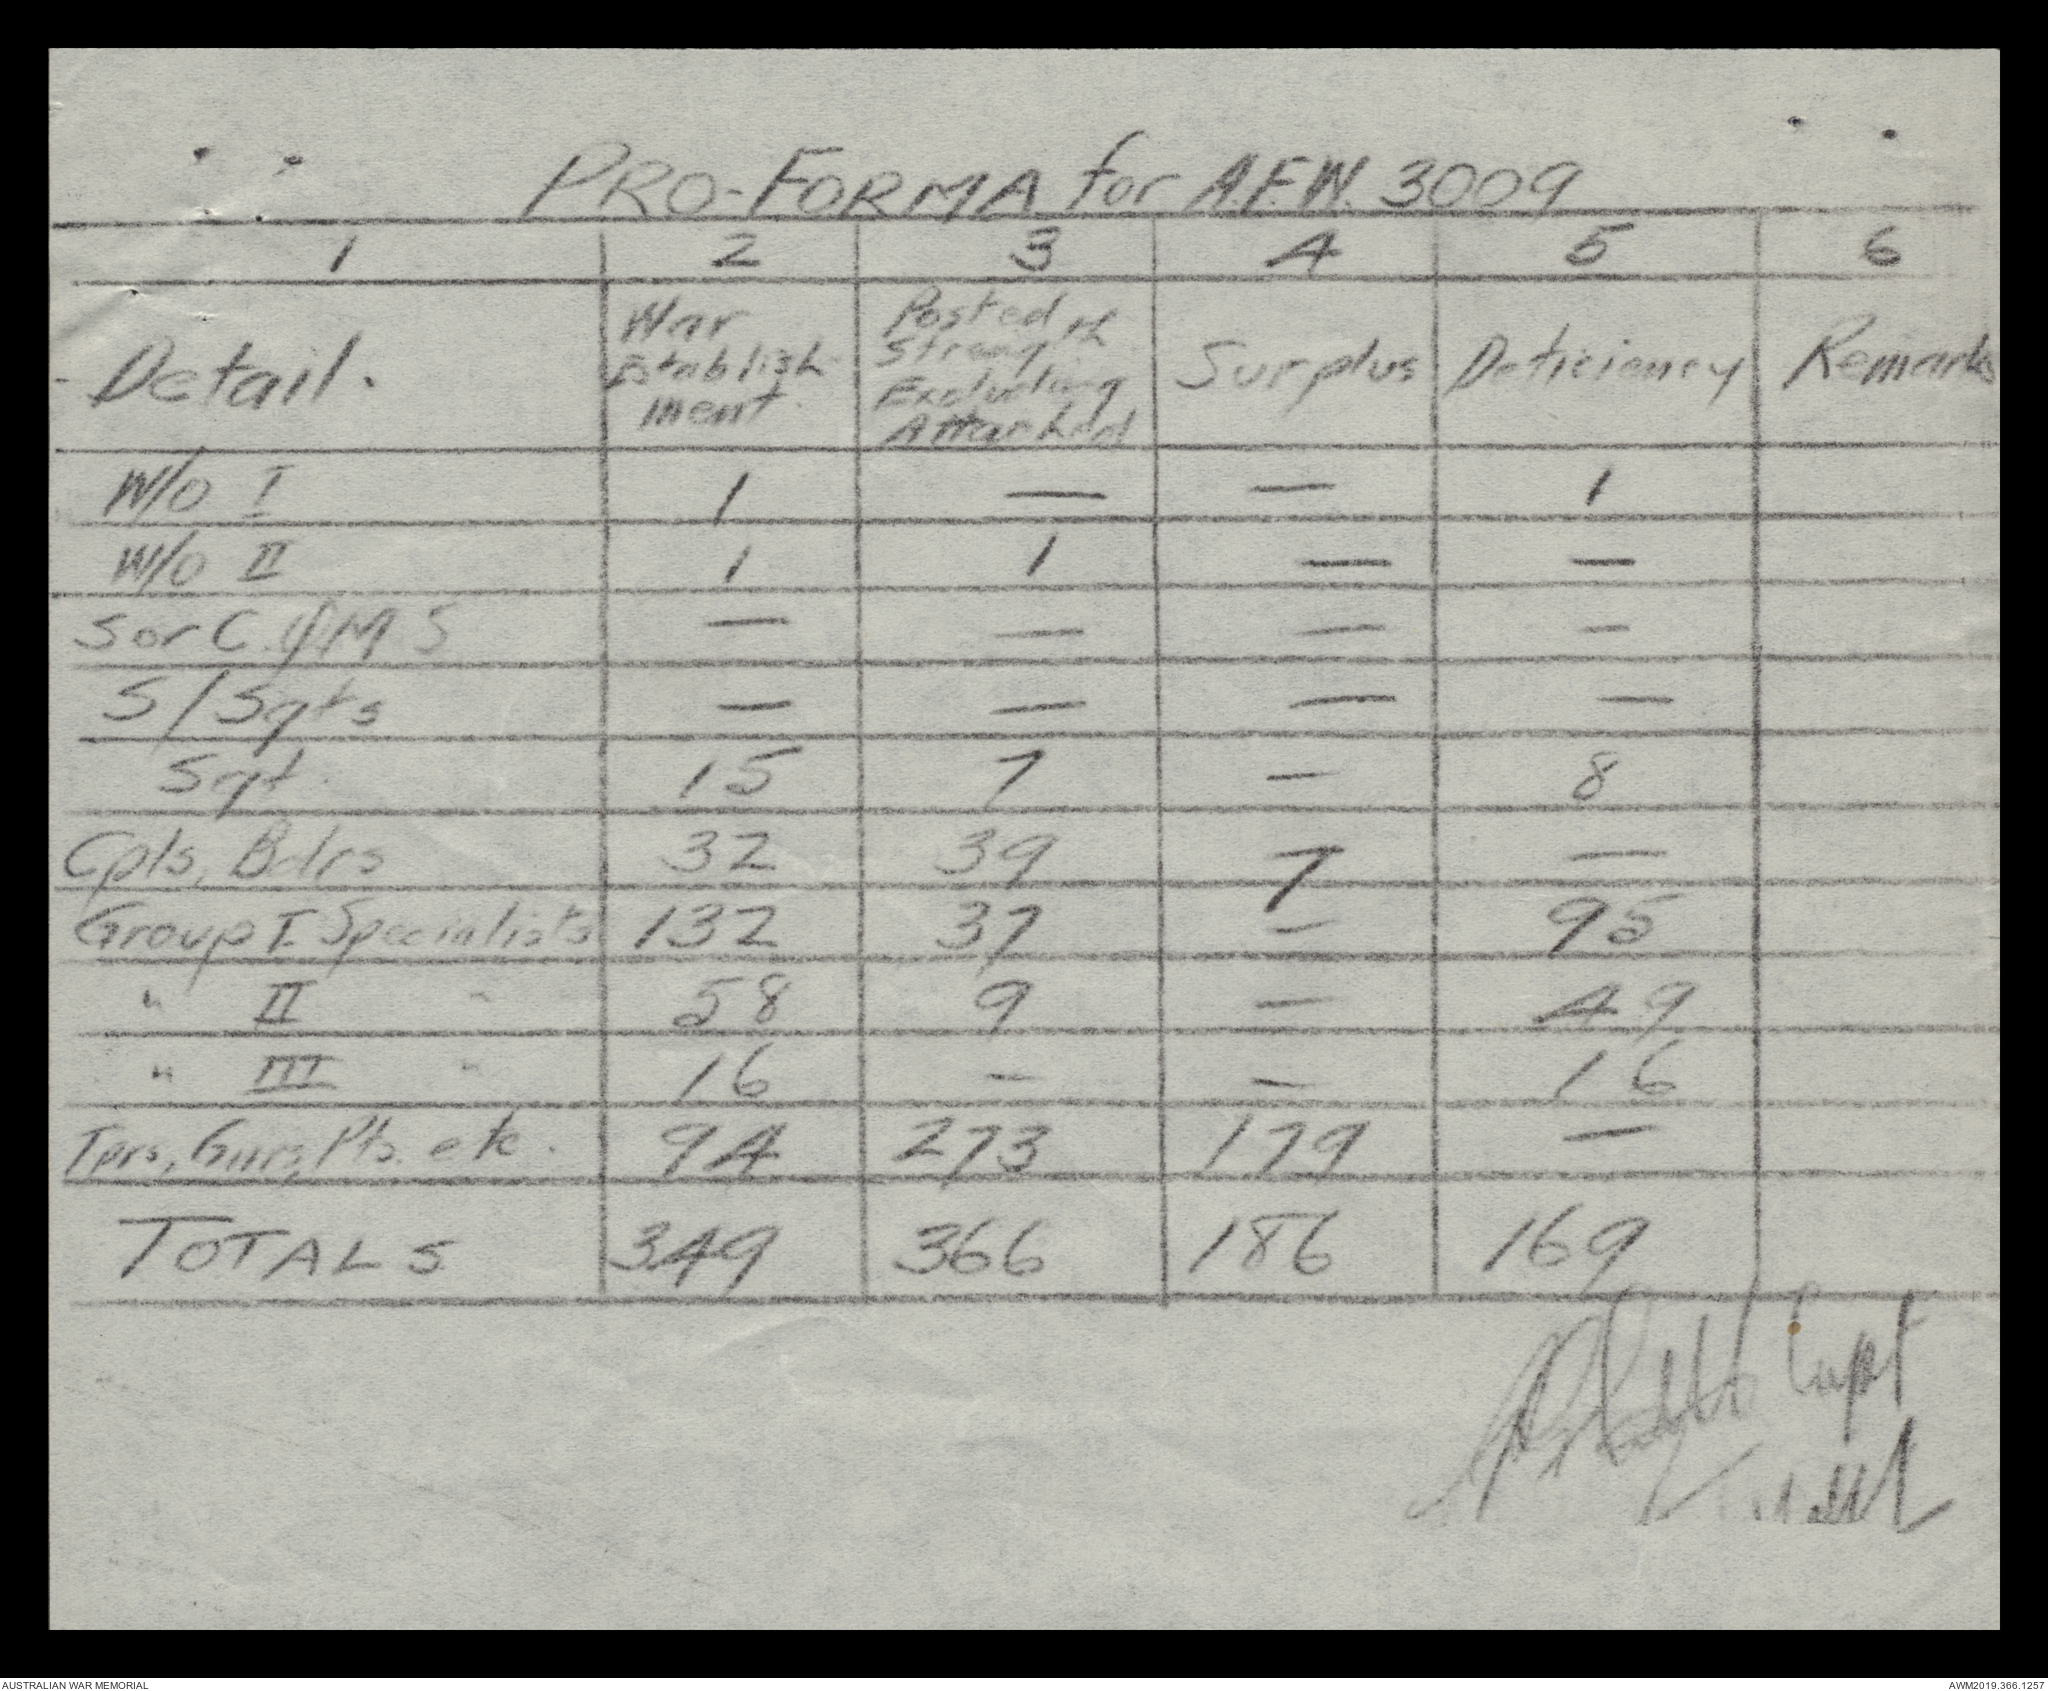 PRO-FORMA for A.F.W. 3009
1 2 3 4 5 6
Detail. War Establish- ment. Posted Strength Excluding Attached Surplus Deficiency Remarks
W/O I 1 — — 1
W/O II 1 1 — —
S or C.Q.M.S — — — —
S/Sgts — — — —
Sgt. 15 7 — 8
Cpls, Bdrs 32 39 7 —
Group I Specialists 132 37 — 95
" II " 58 9 — 49
" III " 16 — — 16
Tprs, Gnrs, Pts. etc. 94 273 179 —
TOTALS 349 366 186 169
Capt
AUSTRALIAN WAR MEMORIAL AWM2019.366.1257